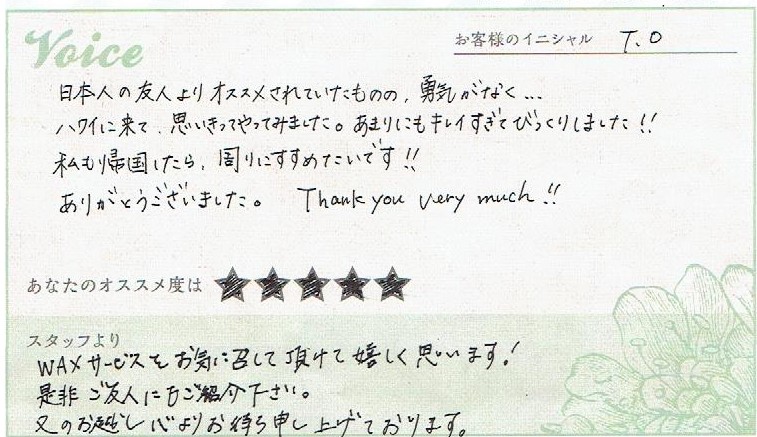 Voice
お客様のイニシャル T.O
日本人の友人よりオススメされていたものの、勇気がなく...
ハワイに来て、思いきってやってみました。あまりにもキレイすぎてびっくりしました!!
私も帰国したら、周りにすすめたいです!!
ありがとうございました。 Thank you very much!!
あなたのオススメ度は ★★★★★
スタッフより
WAXサービスをお気に召して頂けて嬉しく思います!
是非ご友人にもご紹介下さい。
又のお越し心よりお待ち申し上げております。